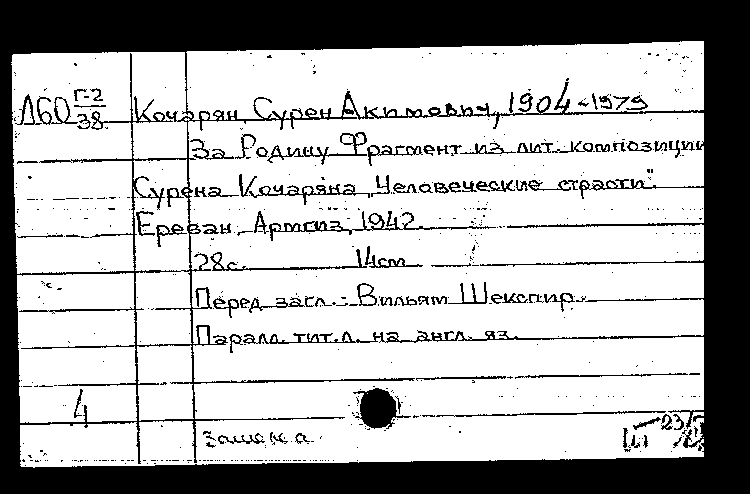 Л60 Г-2/38 Кочарян, Сурен Акимович, 1904-1979
За Родину Фрагмент из лит. композиции
Сурена Кочаряна „Человеческие страсти".
Ереван, Армгиз, 1942.
28с. 14см
Перед загл.: Вильям Шекспир.
Паралл. тит.л. на англ. яз.
4
замена